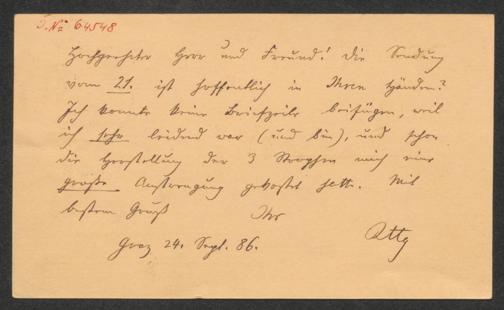 I.Nº 64548
Hochgeehrter Herr und Freund! Die Sendung
vom 21. ist hoffentlich in Ihren Händen?
Ich konnte keine Briefzeile beifügen, weil
ich sehr leidend war (und bin), und schon
die Herstellung der 3 Strophen mich eine
große Anstrengung gekostet hatte. Mit
bestem Gruß Ihr
Graz 24. Sept. 86.